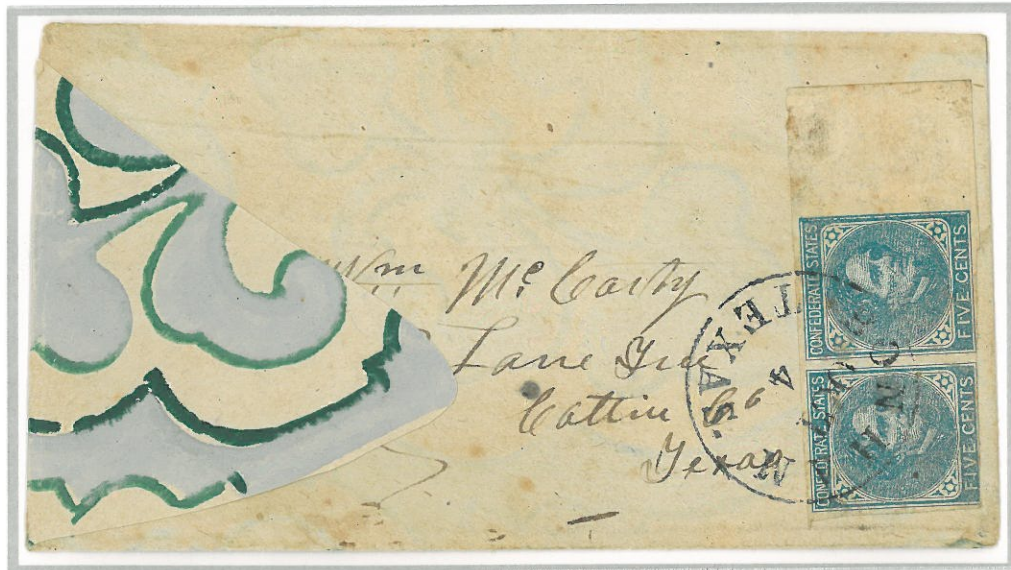 Wm McCarty
Lane
Texas
TEXAS.
4
CONFEDERATE STATES
FIVE CENTS
CONFEDERATE STATES
FIVE CENTS